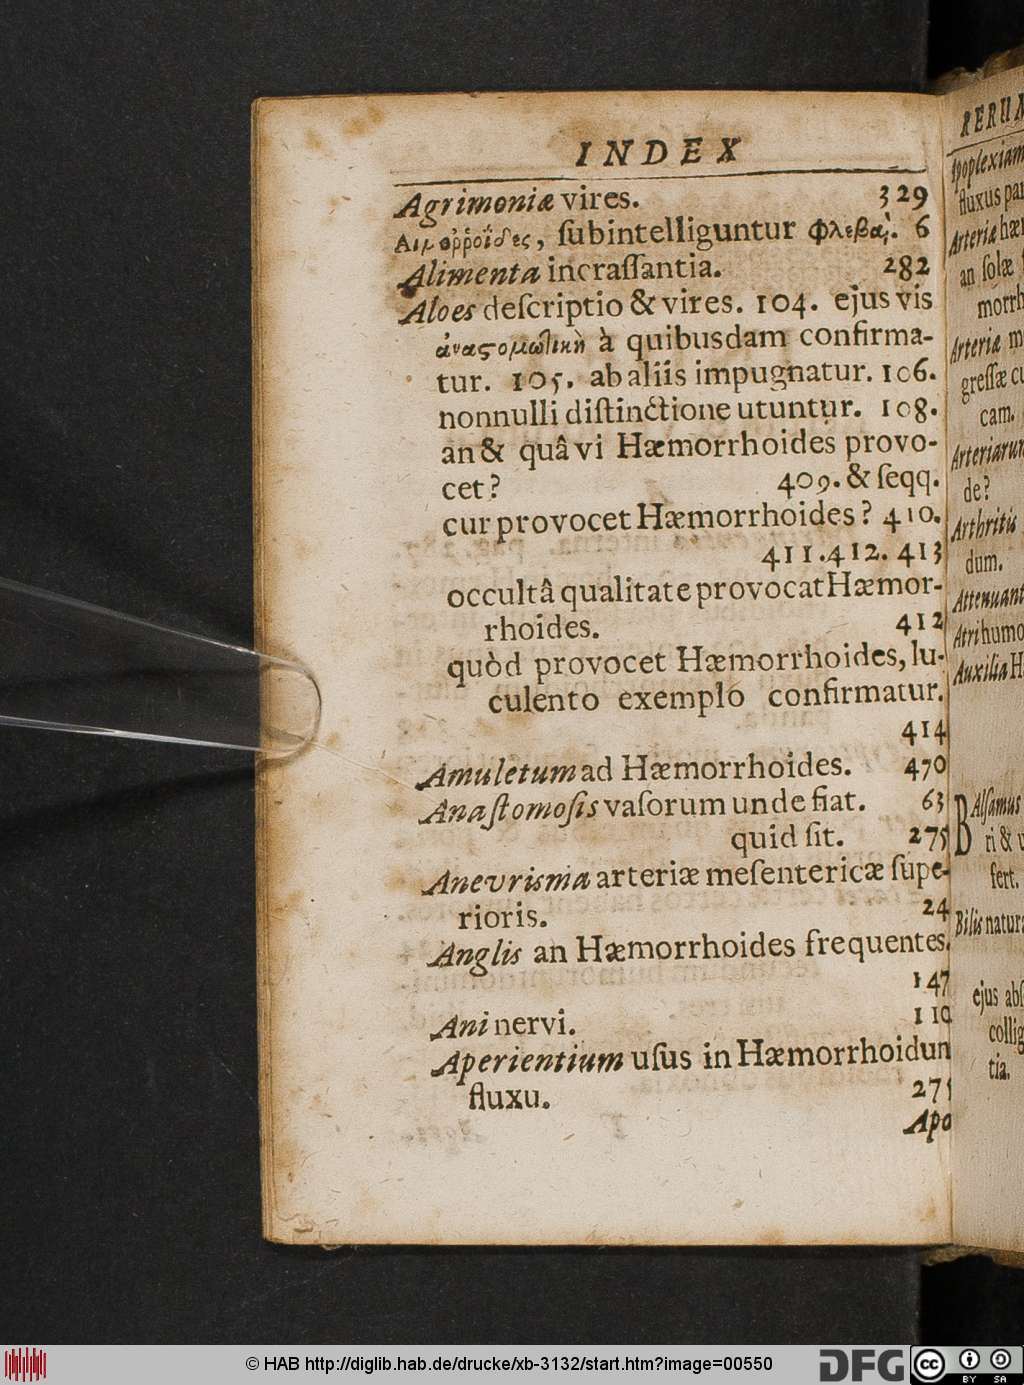 INDEX
Agrimoniæ vires. 329
Αιμοῤῥοΐδες, ſubintelliguntur φλεβαὶ. 6
Alimenta incraſſantia. 282
Aloes deſcriptio & vires. 104. ejus vis
ἀναςομωτικὴ à quibusdam confirma-
tur. 105. ab aliis impugnatur. 106.
nonnulli diſtinctione utuntur. 108.
an & quâ vi Hæmorrhoides provo-
cet? 409. & ſeqq.
cur provocet Hæmorrhoides? 410.
411. 412. 413
occultâ qualitate provocat Hæmor-
rhoides. 412
quòd provocet Hæmorrhoides, lu-
culento exemplo confirmatur.
414
Amuletum ad Hæmorrhoides. 470
Anaſtomoſis vaſorum unde fiat. 63
quid ſit. 275
Anevrisma arteriæ meſentericæ ſupe-
rioris. 24
Anglis an Hæmorrhoides frequentes.
147
Ani nervi. 110
Aperientium uſus in Hæmorrhoidun
fluxu. 275
Apo
RERUM
Apoplexiam
fluxus par
Arteriæ hæm
an ſolæ
morrh
Arteriæ m
greſſæ cu
cam.
Arteriarum
de?
Arthritis
dum.
Attenuant
Atri humo
Auxilia H
BAlſamus
ri & v
fert.
Bilis natura
ejus abſ
collig
tia.
© HAB http://diglib.hab.de/drucke/xb-3132/start.htm?image=00550
DFG
cc BY SA